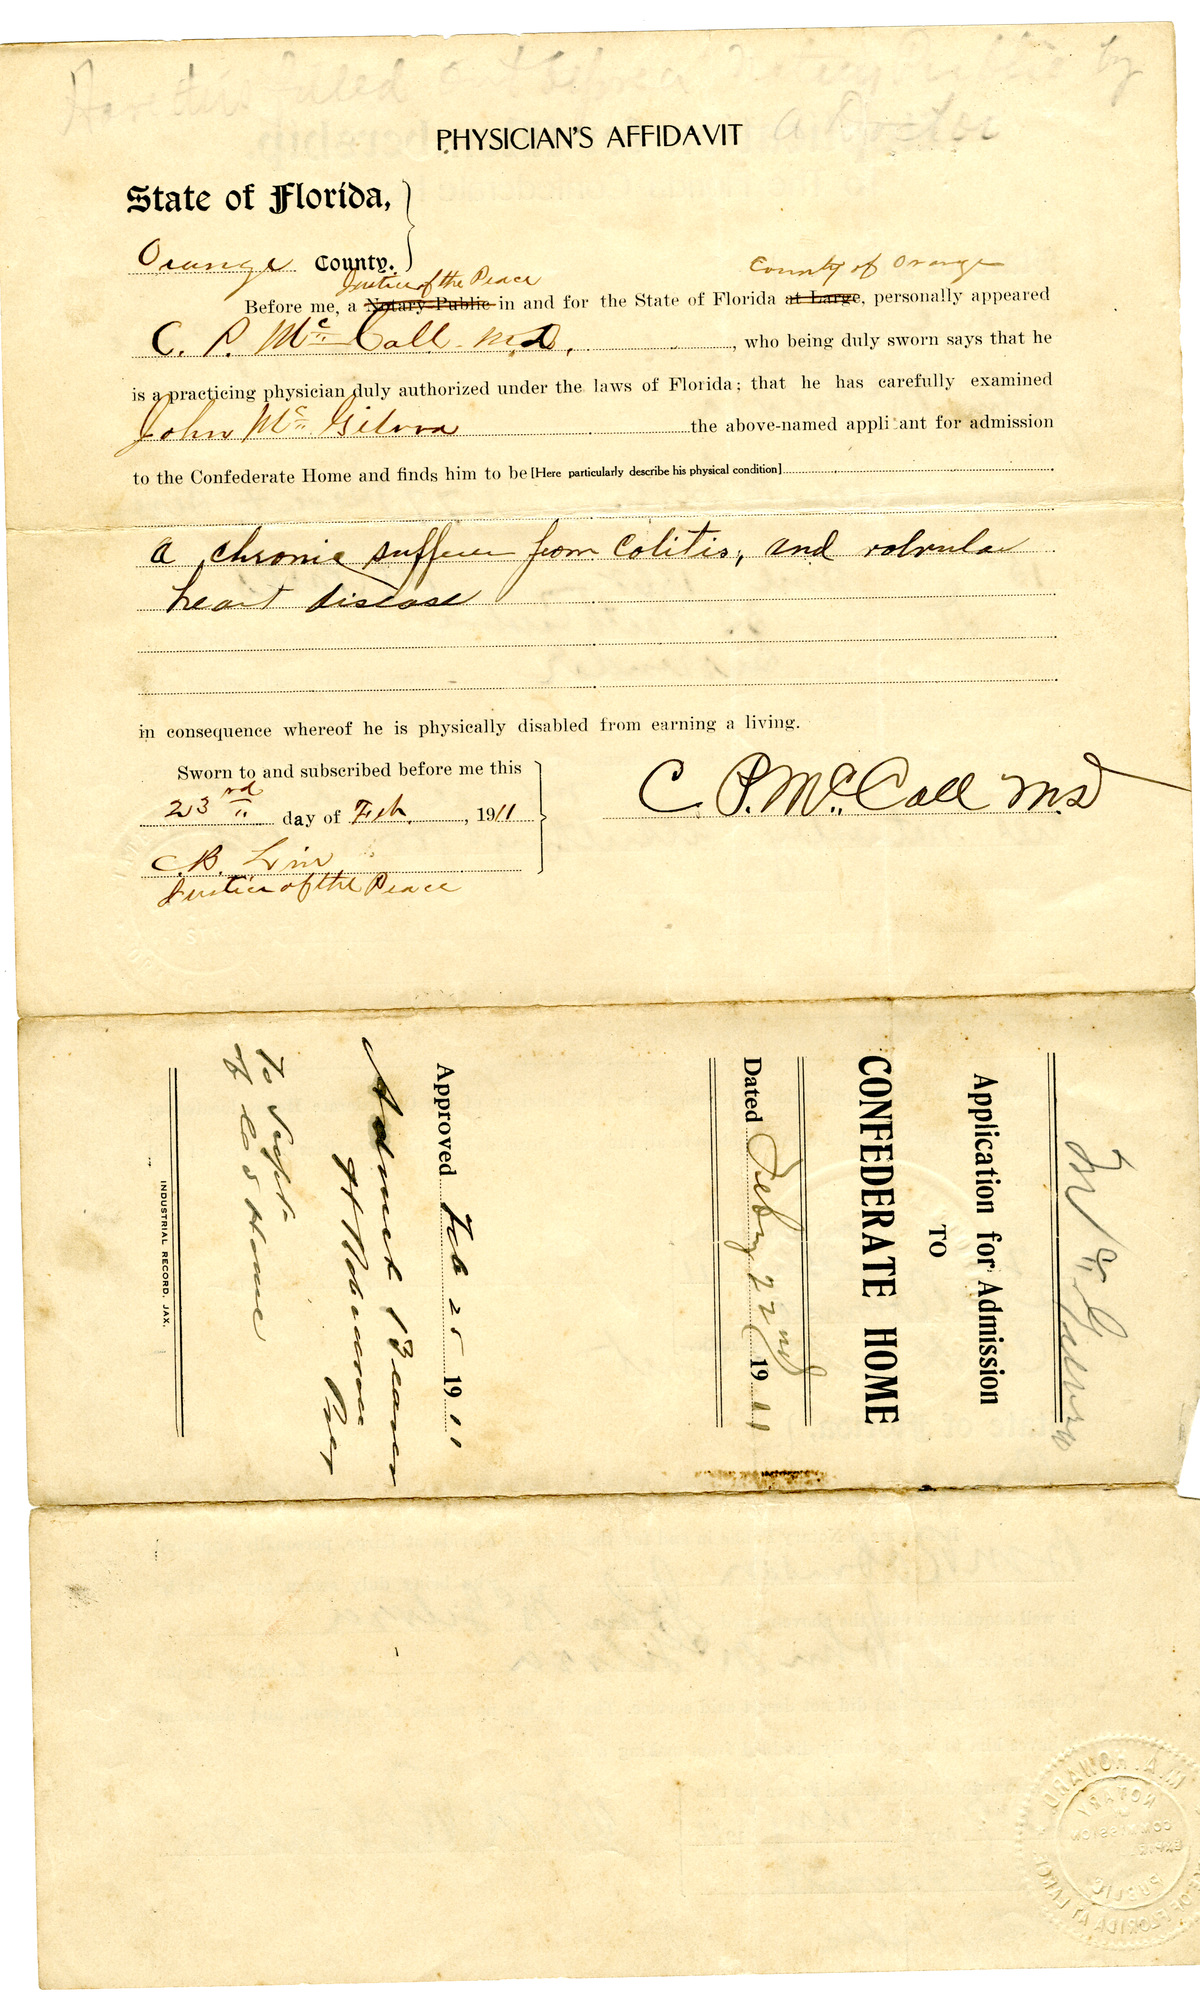 Have this filled out before a Notary Public by
a Doctor
PHYSICIAN'S AFFIDAVIT
State of Florida,
Orange County.
Justice of the Peace County of Orange
Before me, a Notary Public in and for the State of Florida at Large, personally appeared
C. P. McCall M.D., who being duly sworn says that he
is a practicing physician duly authorized under the laws of Florida; that he has carefully examined
John Mc the above-named applicant for admission
to the Confederate Home and finds him to be [Here particularly describe his physical condition]
a chronic sufferer from colitis, and valvular
heart disease
in consequence whereof he is physically disabled from earning a living.
Sworn to and subscribed before me this
23rd day of Feb. 1911
C. P. McCall MD
C.B.
Justice of the Peace
Application for Admission
TO
CONFEDERATE HOME
Dated Feby 22nd 1911
Approved Feb 25 1911
Admit
To Supt.
of Con Home
INDUSTRIAL RECORD, JAX.
M. A. HOWARD
NOTARY
COMMISSION
PUBLIC
STATE OF FLORIDA AT LARGE